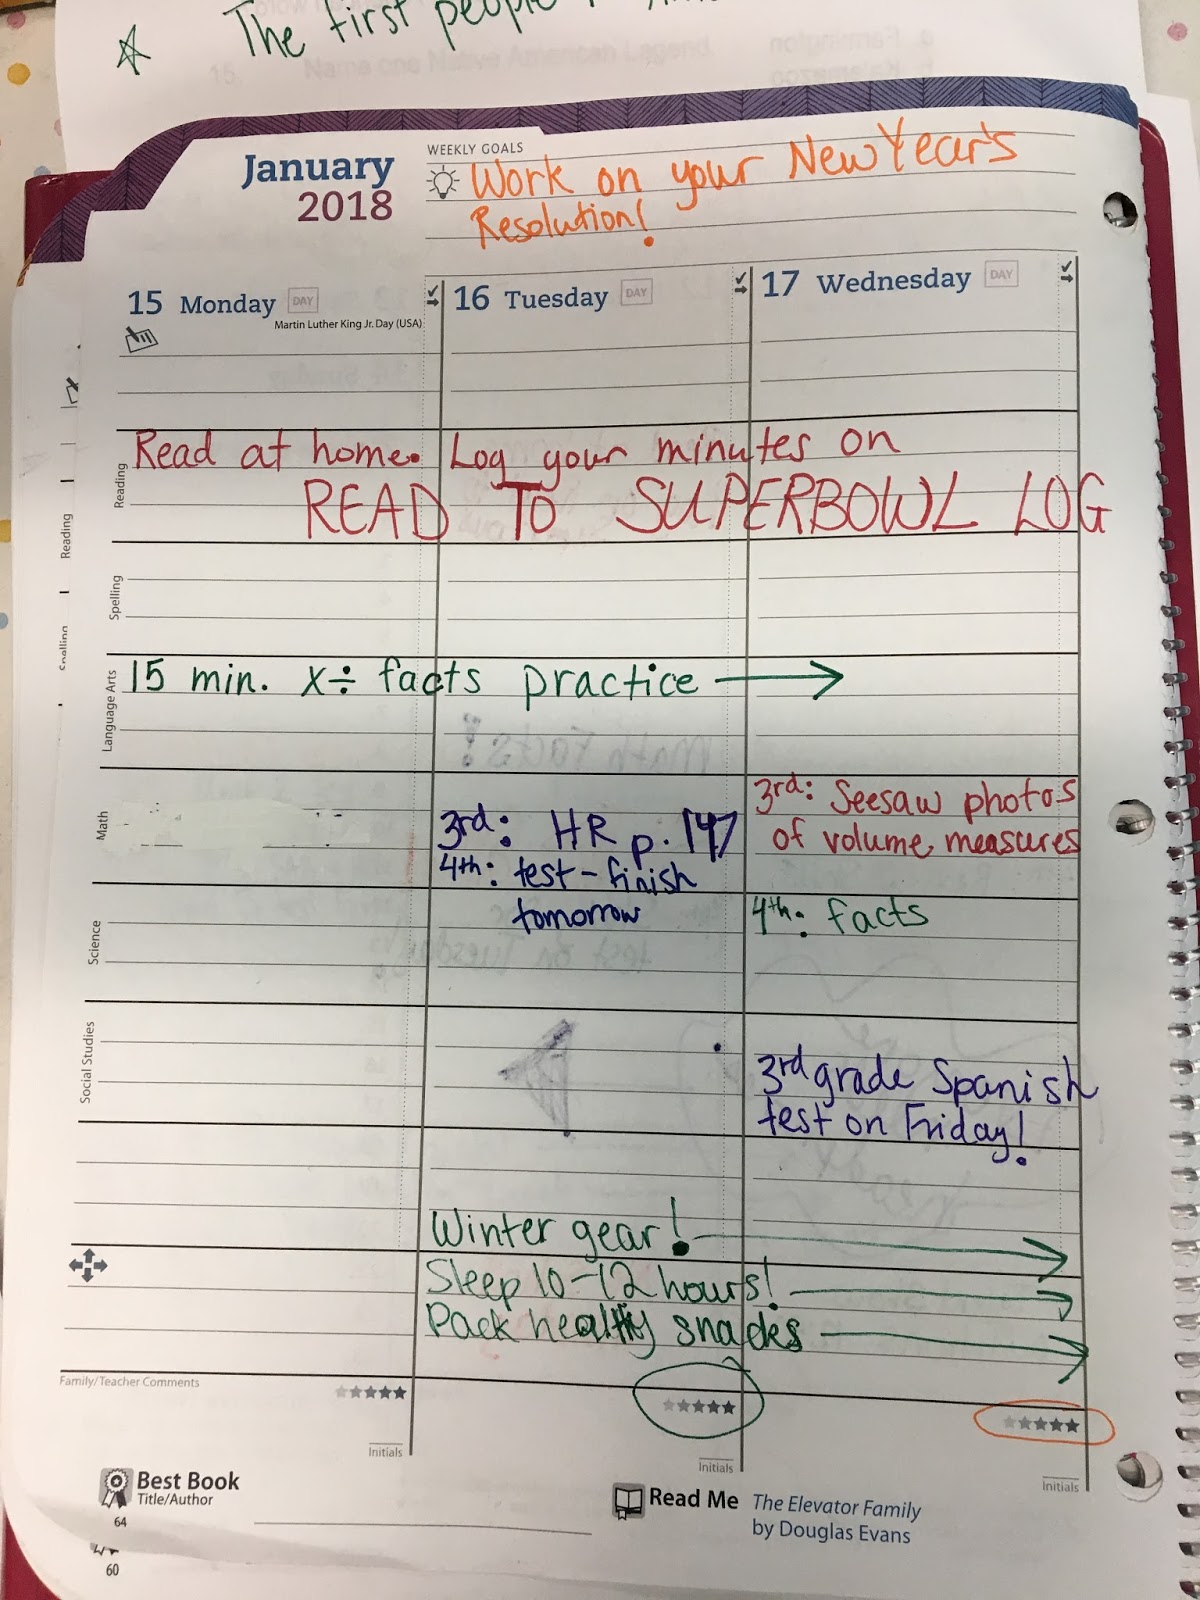 The first people
15. Name one Native American Legend
WEEKLY GOALS
January
2018
Work on your New Year's
Resolution!
15 Monday DAY
Martin Luther King Jr. Day (USA)
16 Tuesday DAY
17 Wednesday DAY
Reading
Read at home. Log your minutes on
READ TO SUPERBOWL LOG
Reading
Spelling
Spelling
Language Arts
15 min. x÷ facts practice
Math
3rd: HR p. 147
4th: test - finish
tomorrow
3rd: Seesaw photos
of volume measures
4th: facts
Science
Social Studies
3rd grade Spanish
test on Friday!
Winter gear!
Sleep 10-12 hours!
Pack healthy snacks
Family/Teacher Comments
Initials
Initials
Initials
Best Book
Title/Author
Read Me
The Elevator Family
by Douglas Evans
64
60